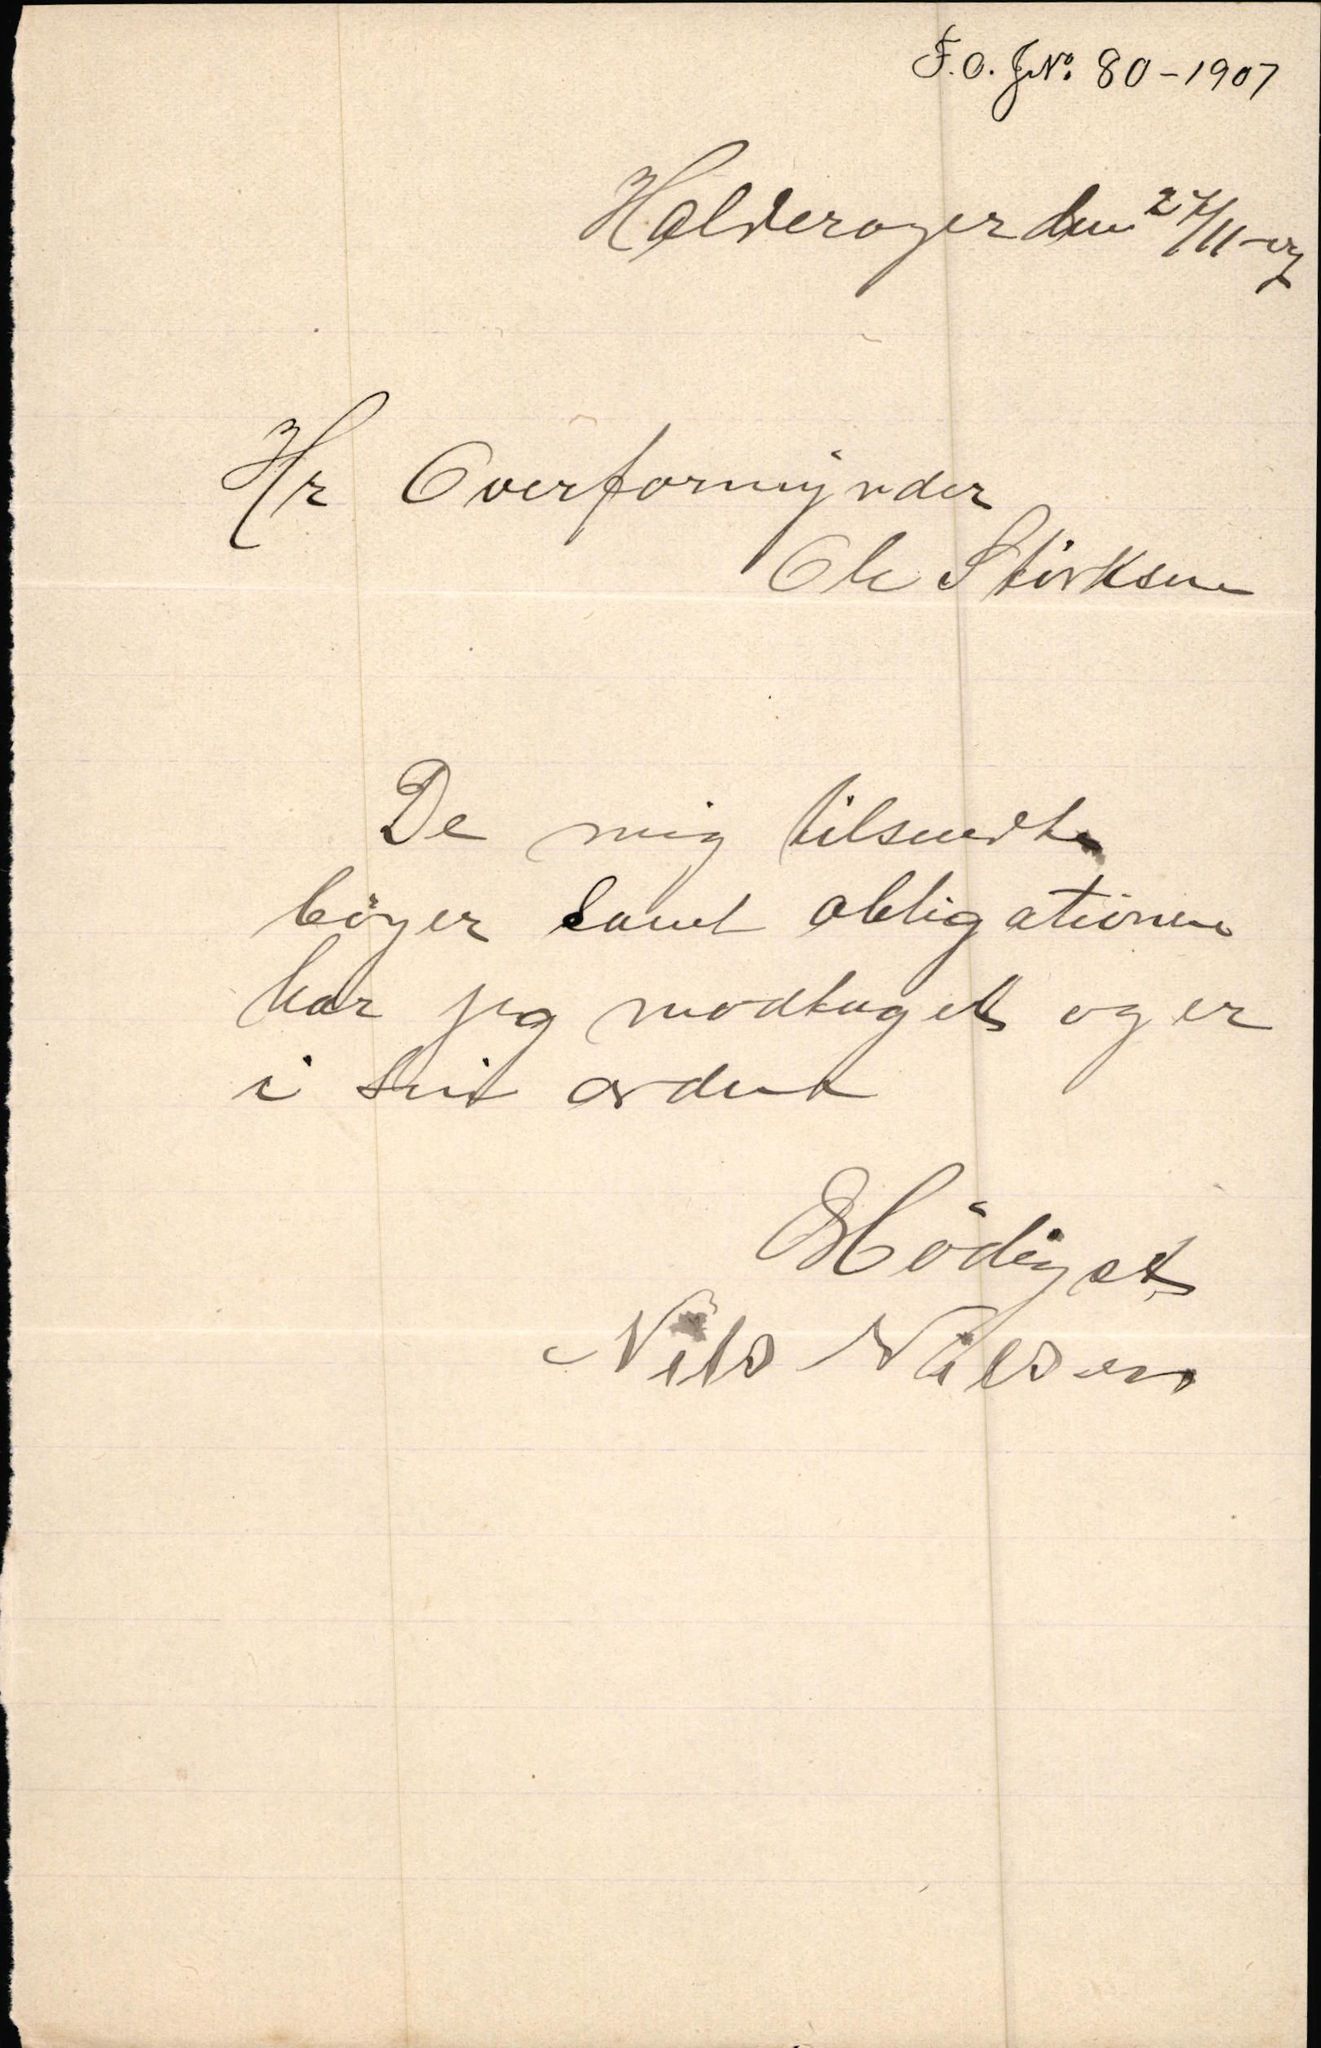 F.O. J.No. 80-1907
Holderager den 27/11-07
Hr Overformynder
Ole Störksen
De mig tilsendte
böger samt obligationen
har jeg modtaget og er
i sin orden
Ærbödigst
Nils Nilsen